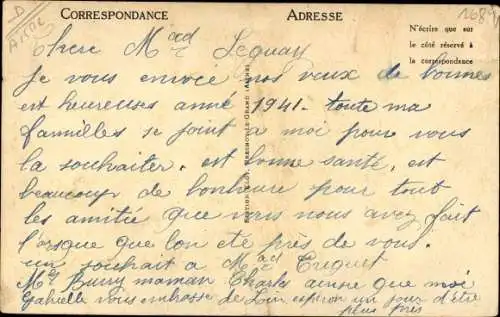 D AISNE
1689
CORRESPONDANCE ADRESSE
N'écrire que sur
le côté réservé à
la correspondance
Chere Mad Lequay
Je vous envoie nos vœux de bonnes
est heureuses anné 1941 - toute ma
familles se joint a moi pour vous
la souhaiter. est bonne santé, est
beaucoup de bonheure pour tout
les amitié que vous nous avez fait
l'orsque que l'on eté près de vous.
un souhait a Mad Triquet
maman Charles ainse que moi
Gabrielle vous enbrasse de Loin esperon un jour d'être
plus près